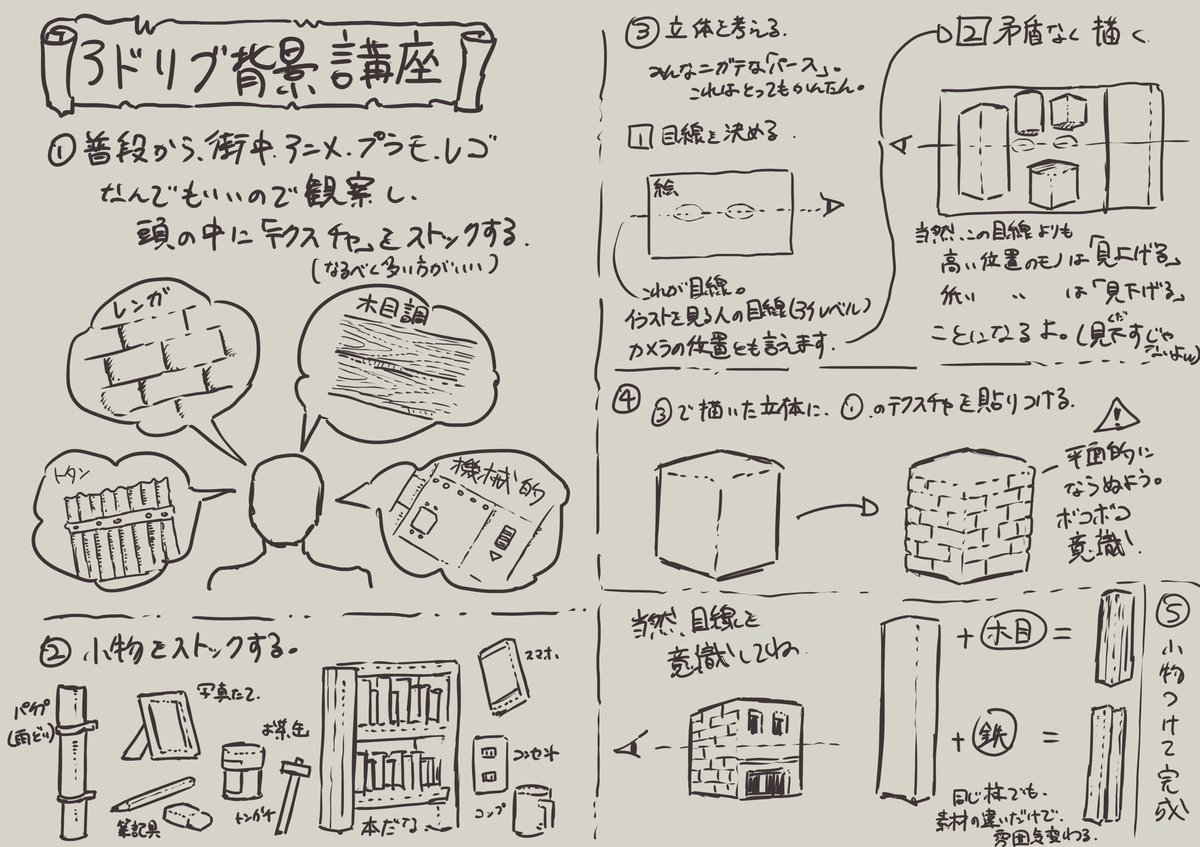 3ドリブ背景講座
①普段から、街中、アニメ、プラモ、レゴ
なんでもいいので観察し、
頭の中に「テクスチャ」をストックする。
(なるべく多い方がいい)
レンガ
木目調
トタン
機械的
②小物をストックする。
パイプ
(雨どい)
写真たて
お茶缶
スマホ
コンセント
筆記具
トンカチ
本だな
コップ
③立体を考える。
みんなニガテな「パース」。
これはとってもかんたん。
1 目線を決める
絵
これが目線。
イラストを見る人の目線(アイレベル)
カメラの位置とも言えます。
2 矛盾なく描く
当然、この目線よりも
高い位置のモノは「見上げる」
低い 〃 は「見下げる」
ことになるよ。(見下すじゃ
くだ
ないよw)
④ ③で描いた立体に、①のテクスチャを貼りつける。
平面的に
ならぬよう。
ボコボコ
意識!
当然、目線を
意識してね
+ 木目 =
+ 鉄 =
同じ柱でも、
素材の違いだけで、
雰囲気変わる。
⑤小物つけて完成